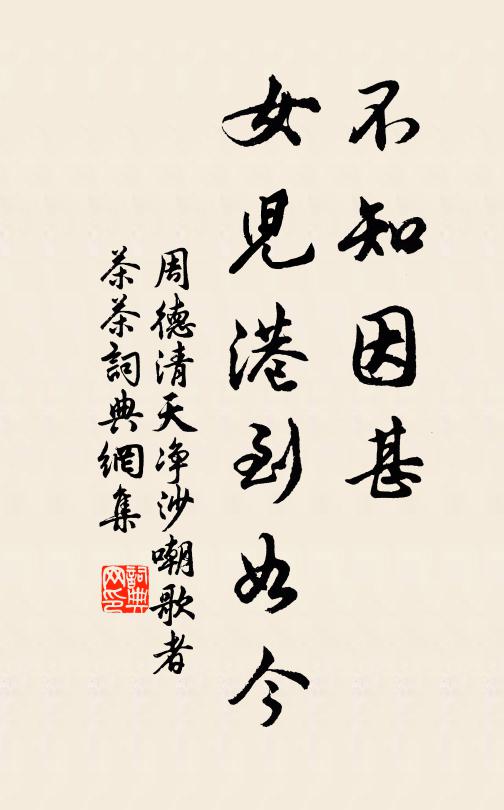 不知因甚
女兒港到如今
周德清天净沙嘲歌者
茶茶詞典網集
詞典
网印